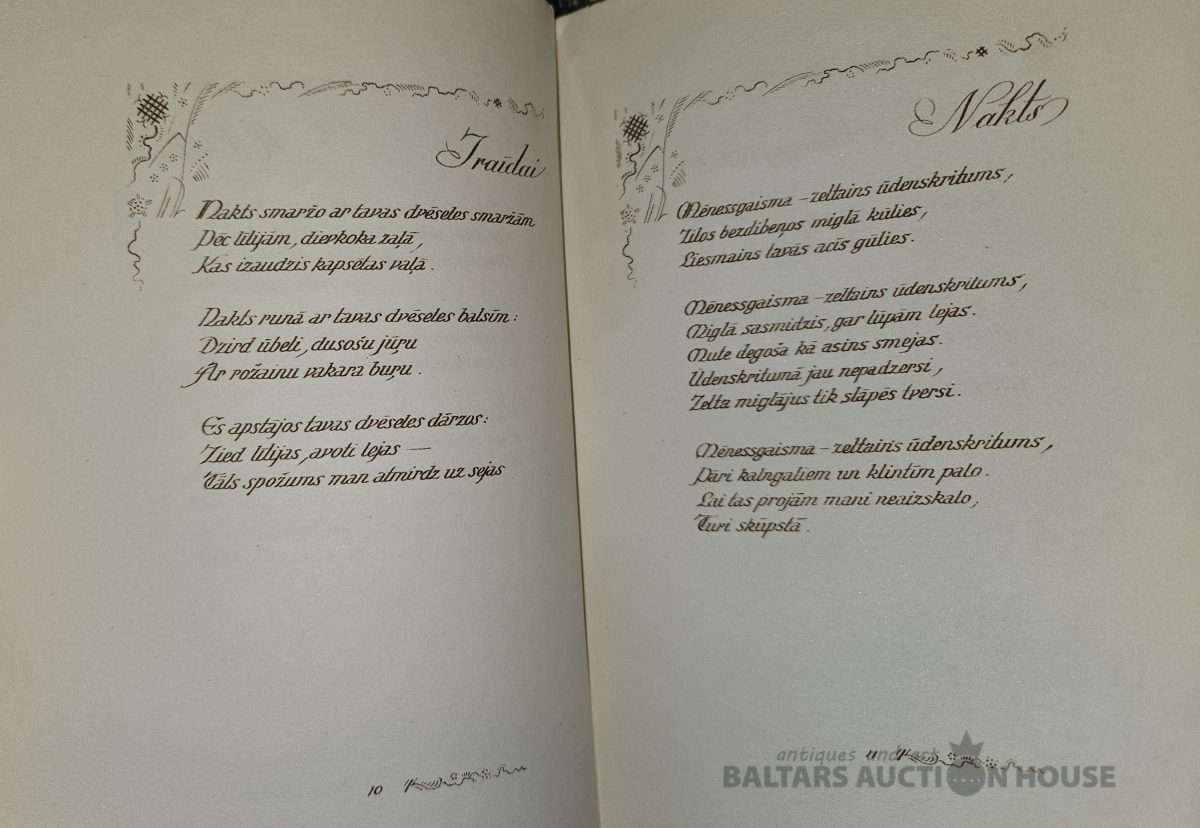 Iraīdai
Nakts smaržo ar tavas dvēseles smaržām
Pēc lilijām, dievkoka zaļā,
Kas izaudzis kapsētas vaļā.
Nakts runā ar tavas dvēseles balsīm:
Dzird ūbeli, dusošu jūŗu
Ar rožainu vakara buŗu.
Es apstājos tavas dvēseles dārzos:
Zied lilijas, avoti lejas —
Tāls spožums man atmirdz uz sejas
10
Nakts
Mēnessgaisma – zeltains ūdenskritums,
Zilos bezdibeņos miglā kūlies,
Liesmains tavās acīs gūlies.
Mēnessgaisma – zeltains ūdenskritums,
Miglā sasmidzis, gar lūpām lejas.
Mute degoša kā asins smejas.
Ūdenskritumā jau nepadzersi,
Zelta miglājus tik slāpēs tversi.
Mēnessgaisma – zeltains ūdenskritums,
Pāri kalngaliem un klintīm palo.
Lai tas projām mani neaizskalo,
Turi skūpstā.
11
antiques and art
BALTARS AUCTION HOUSE